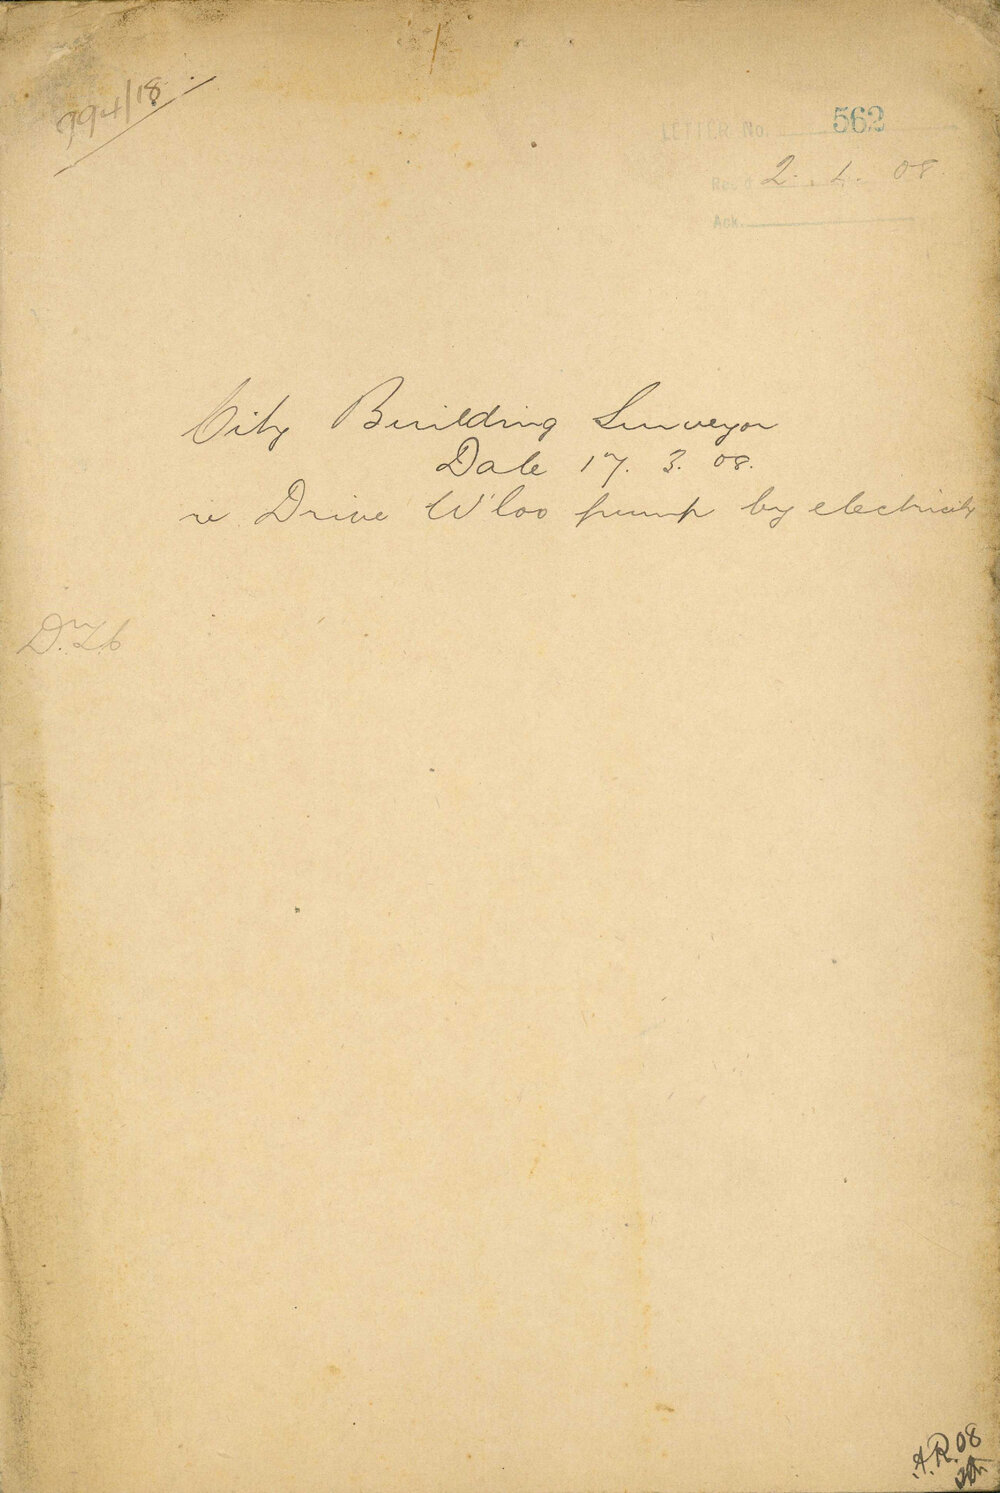 394/18
LETTER No. 562
Rec'd 2. 4. 08
Ack.
City Building Surveyor
Date 17. 3. 08.
re Drive W'loo pump by electricity
A.R. 08